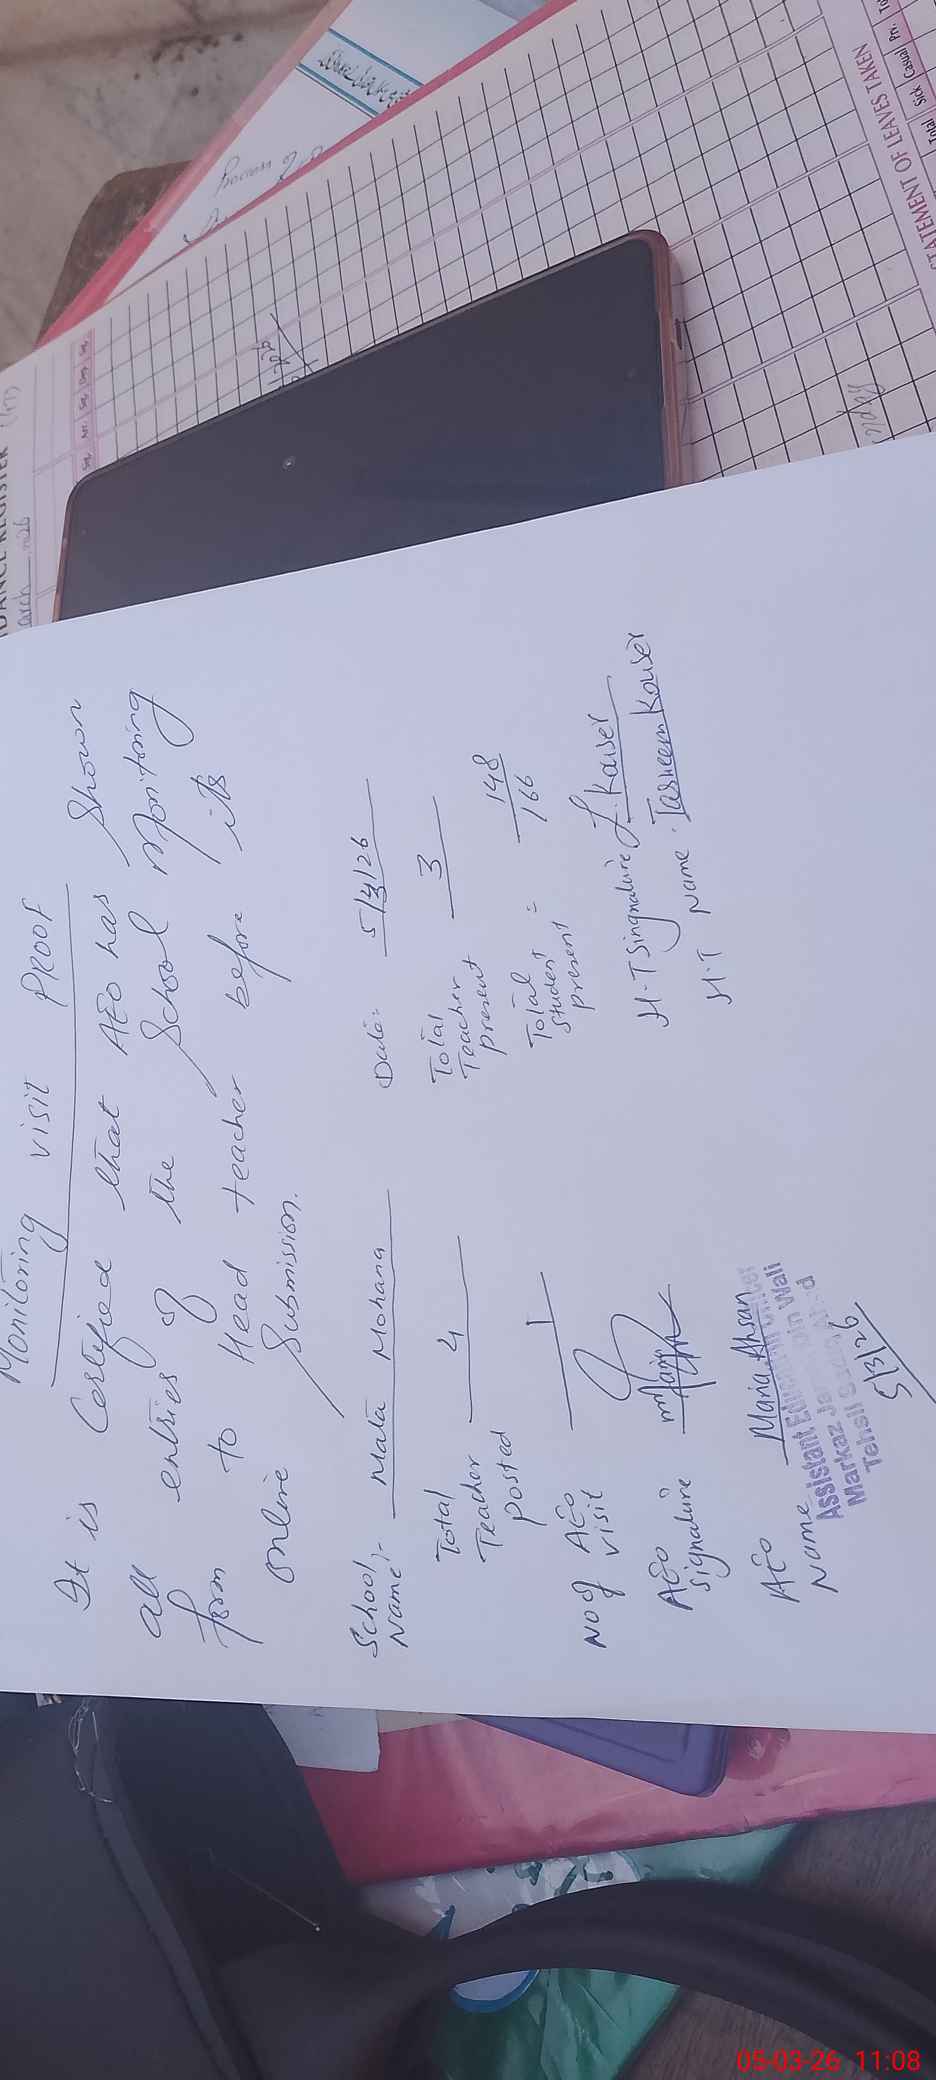 Monitoring visit PROOF
It is Certified that AEO has Shown
all entries of the School Monitoring
form to Head teacher before its
online Submission.
School Name:- Mala Mohana
Date: 5/3/26
Total Teacher Posted 4
Total Teacher present 3
No of AEO visit 1
Total Student present = 148/166
AEO signature
H.T Singnature T.Kauser
AEO Name Maria Ahsan
H.T Name. Tasneem Kouser
Assistant Education Officer
Markaz
Tehsil
5/3/26
STATEMENT OF LEAVES TAKEN
Total Sick Casual Pri.
05-03-26 11:08